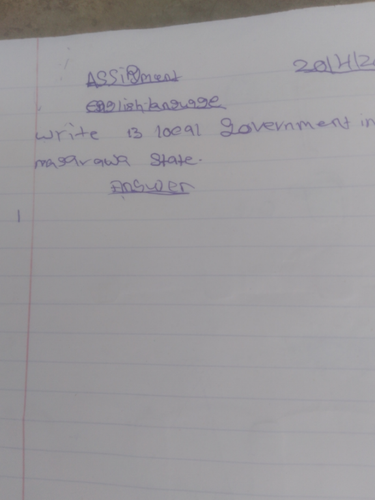 Assignment 20/4/2
English language
write 13 local Government in
nasarawa State.
Answer
1